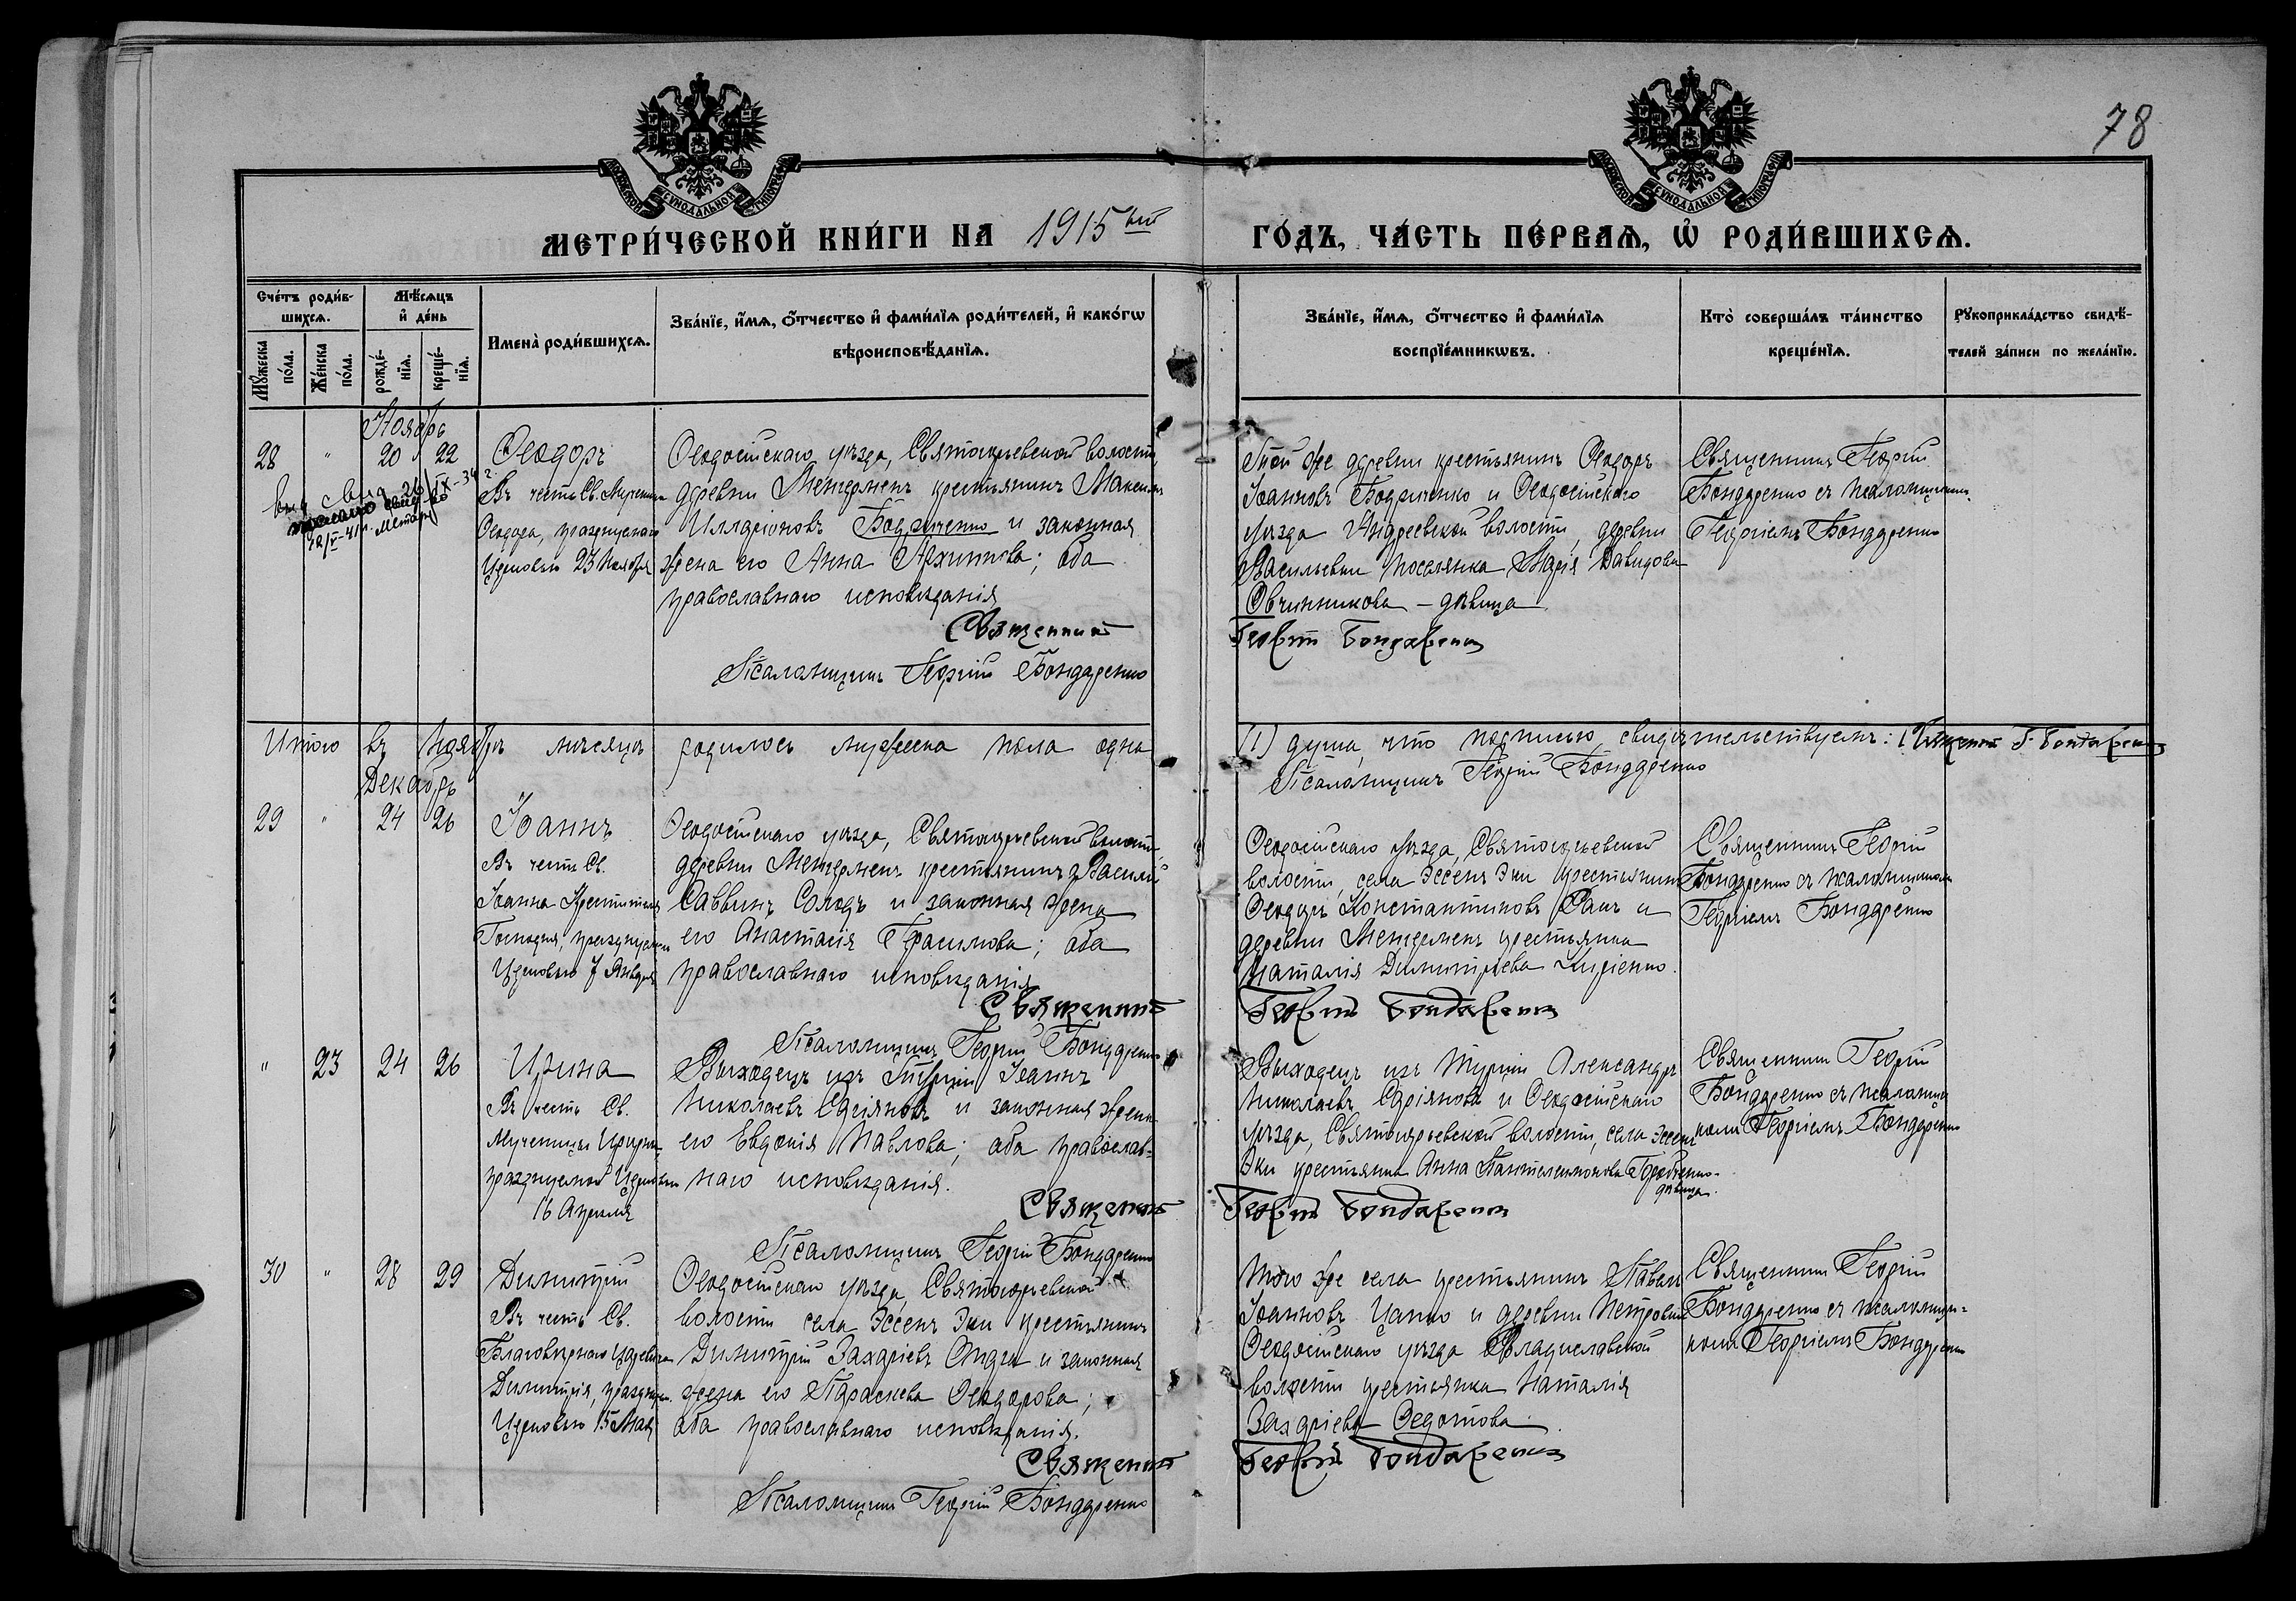 78
МЕТРИ́ЧЕСКОЙ КНИ́ГИ НА 1915ый ГО́ДЪ, ЧА́СТЬ ПЕ́РВАѦ, Ѽ РОДИ́ВШИХСѦ.
Сче́тъ роди́в-
шихсѧ.
Мѣ́сѧцъ
и҆ де́нь
Имена̀ роди́вшихсѧ.
Зва́нїе, и҆́мѧ, ѻ҆́тчество и҆ фами́лїѧ роди́телей, и҆ како́гѡ
вѣроисповѣ́данїѧ.
Зва́нїе, и҆́мѧ, ѻ҆́тчество и҆ фами́лїѧ
воспрїе́мникѡвъ.
Кто̀ соверша́лъ та́инство
креще́нїѧ.
Рꙋкоприкла́дство свидѣ́-
телей за́писи по жела́нїю.
Мꙋ́жеска
по́ла.
Же́нска
по́ла.
рожде́-
нїѧ.
креще́-
нїѧ.
Ноябрь
28 " 20 22
Ѳеодоръ
Въ честь Св. Мученика
Ѳеодора, празднуемаго
Церковью 23 Ноября
Ѳеодосійскаго уѣзда, Святогорьевской волости,
деревни Менгерменъ крестьянинъ Максимъ
Илларіоновъ Бодриченко и законная
жена его Анна Архипова; оба
православнаго исповѣданія
Священникъ
Псаломщикъ Георгій Бондаренко
Той же деревни крестьянинъ Ѳеодоръ
Іоанновъ Бодриченко и Ѳеодосійскаго
уѣзда Андреевской волости, деревни
Васильевки поселянка Марія Давидова
Овчинникова – дѣвица
Георгій Бондаренко
Священникъ Георгій
Бондаренко съ псаломщикомъ
Георгіемъ Бондаренко
Итого въ Ноябрѣ мѣсяцѣ родилось мужеска пола одна
(1) душа, что подписью свидѣтельствуемъ: Священникъ Г. Бондаренко
Псаломщикъ Георгій Бондаренко
Декабрь
29 " 24 26
Іоаннъ
Въ честь Св.
Іоанна Крестителя
Господня, празднуемаго
Церковью 7 Января
Ѳеодосійскаго уѣзда, Святогорьевской волости,
деревни Менгерменъ крестьянинъ Василій
Саввинъ Солодъ и законная жена
его Анастасія Герасимова; оба
православнаго исповѣданія
Священникъ
Псаломщикъ Георгій Бондаренко
Ѳеодосійскаго уѣзда, Святогорьевской
волости, села Эссенъ Эки крестьянинъ
Ѳеодоръ Константиновъ и
деревни Менгерменъ крестьянка
Наталія Димитріева Кириенко.
Георгій Бондаренко
Священникъ Георгій
Бондаренко съ псаломщикомъ
Георгіемъ Бондаренко
" 23 24 26
Ирина
Въ честь Св.
Мученицы Ирины
празднуемой Церковью
16 Апрѣля
Выходецъ изъ Турціи Іоаннъ
Николаевъ Саріяновъ и законная жена
его Евдокія Павлова; оба православ-
наго исповѣданія.
Священникъ
Псаломщикъ Георгій Бондаренко
Выходецъ изъ Турціи Александръ
Николаевъ Саріяновъ и Ѳеодосійскаго
уѣзда, Святогорьевской волости, села Эссенъ
Эки крестьянка Анна Пантелеимонова
дѣвица.
Георгій Бондаренко
Священникъ Георгій
Бондаренко съ псаломщи
комъ Георгіемъ Бондаренко
30 " 28 29
Димитрій
Въ честь Св.
Благовѣрнаго Царевича
Димитрія, празднуем.
Церковью 15 Мая
Ѳеодосійскаго уѣзда, Святогорьевской
волости села Эссенъ Эки крестьянинъ
Димитрій Захаріевъ и законная
жена его Параскева Ѳеодорова;
оба православнаго исповѣданія.
Священникъ
Псаломщикъ Георгій Бондаренко
Того же села крестьянинъ Павелъ
Іоанновъ Цапко и деревни Петровки
Ѳеодосійскаго уѣзда Владиславской
волости крестьянка Наталія
Захаріева Ѳедотова.
Георгій Бондаренко
Священникъ Георгій
Бондаренко съ псаломщи-
комъ Георгіемъ Бондаренко